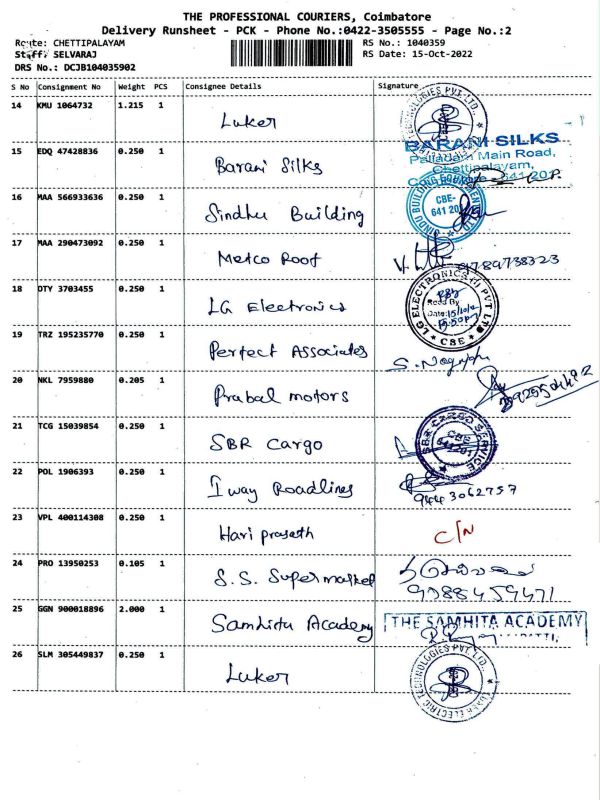 THE PROFESSIONAL COURIERS, Coimbatore
Delivery Runsheet - PCK - Phone No.:0422-3505555 - Page No.:2
Route: CHETTIPALAYAM RS No.: 1040359
Staff: SELVARAJ RS Date: 15-Oct-2022
DRS No.: DCJB104035902
S No Consignment No Weight PCS Consignee Details Signature
14 KMU 1064732 1.215 1 Luker
15 EDQ 47428836 0.250 1 Barani Silks BARANI SILKS
Palladam Main Road,
Chettipalayam,
16 MAA 566933636 0.250 1 Sindhu Building CBE-
641 201
17 MAA 290473092 0.250 1 Metco Roof 9789738323
18 DTY 3703455 0.250 1 LG Electronics LG ELECTRONICS (I) PVT LTD
CBE
19 TRZ 195235770 0.250 1 Perfect Associates
20 NKL 7959880 0.205 1 Prabal motors
21 TCG 15039854 0.250 1 SBR Cargo SBR CARGO SERVICE
CBE
641201
22 POL 1906393 0.250 1 Iway Roadlines
9443062757
23 VPL 400114308 0.250 1 Hari prasath C/N
24 PRO 13950253 0.105 1 S.S. Supermarket
9788459471
25 GGN 900018896 2.000 1 Samhitu Academy THE SAMHITA ACADEMY
26 SLM 305449837 0.250 1 Luker